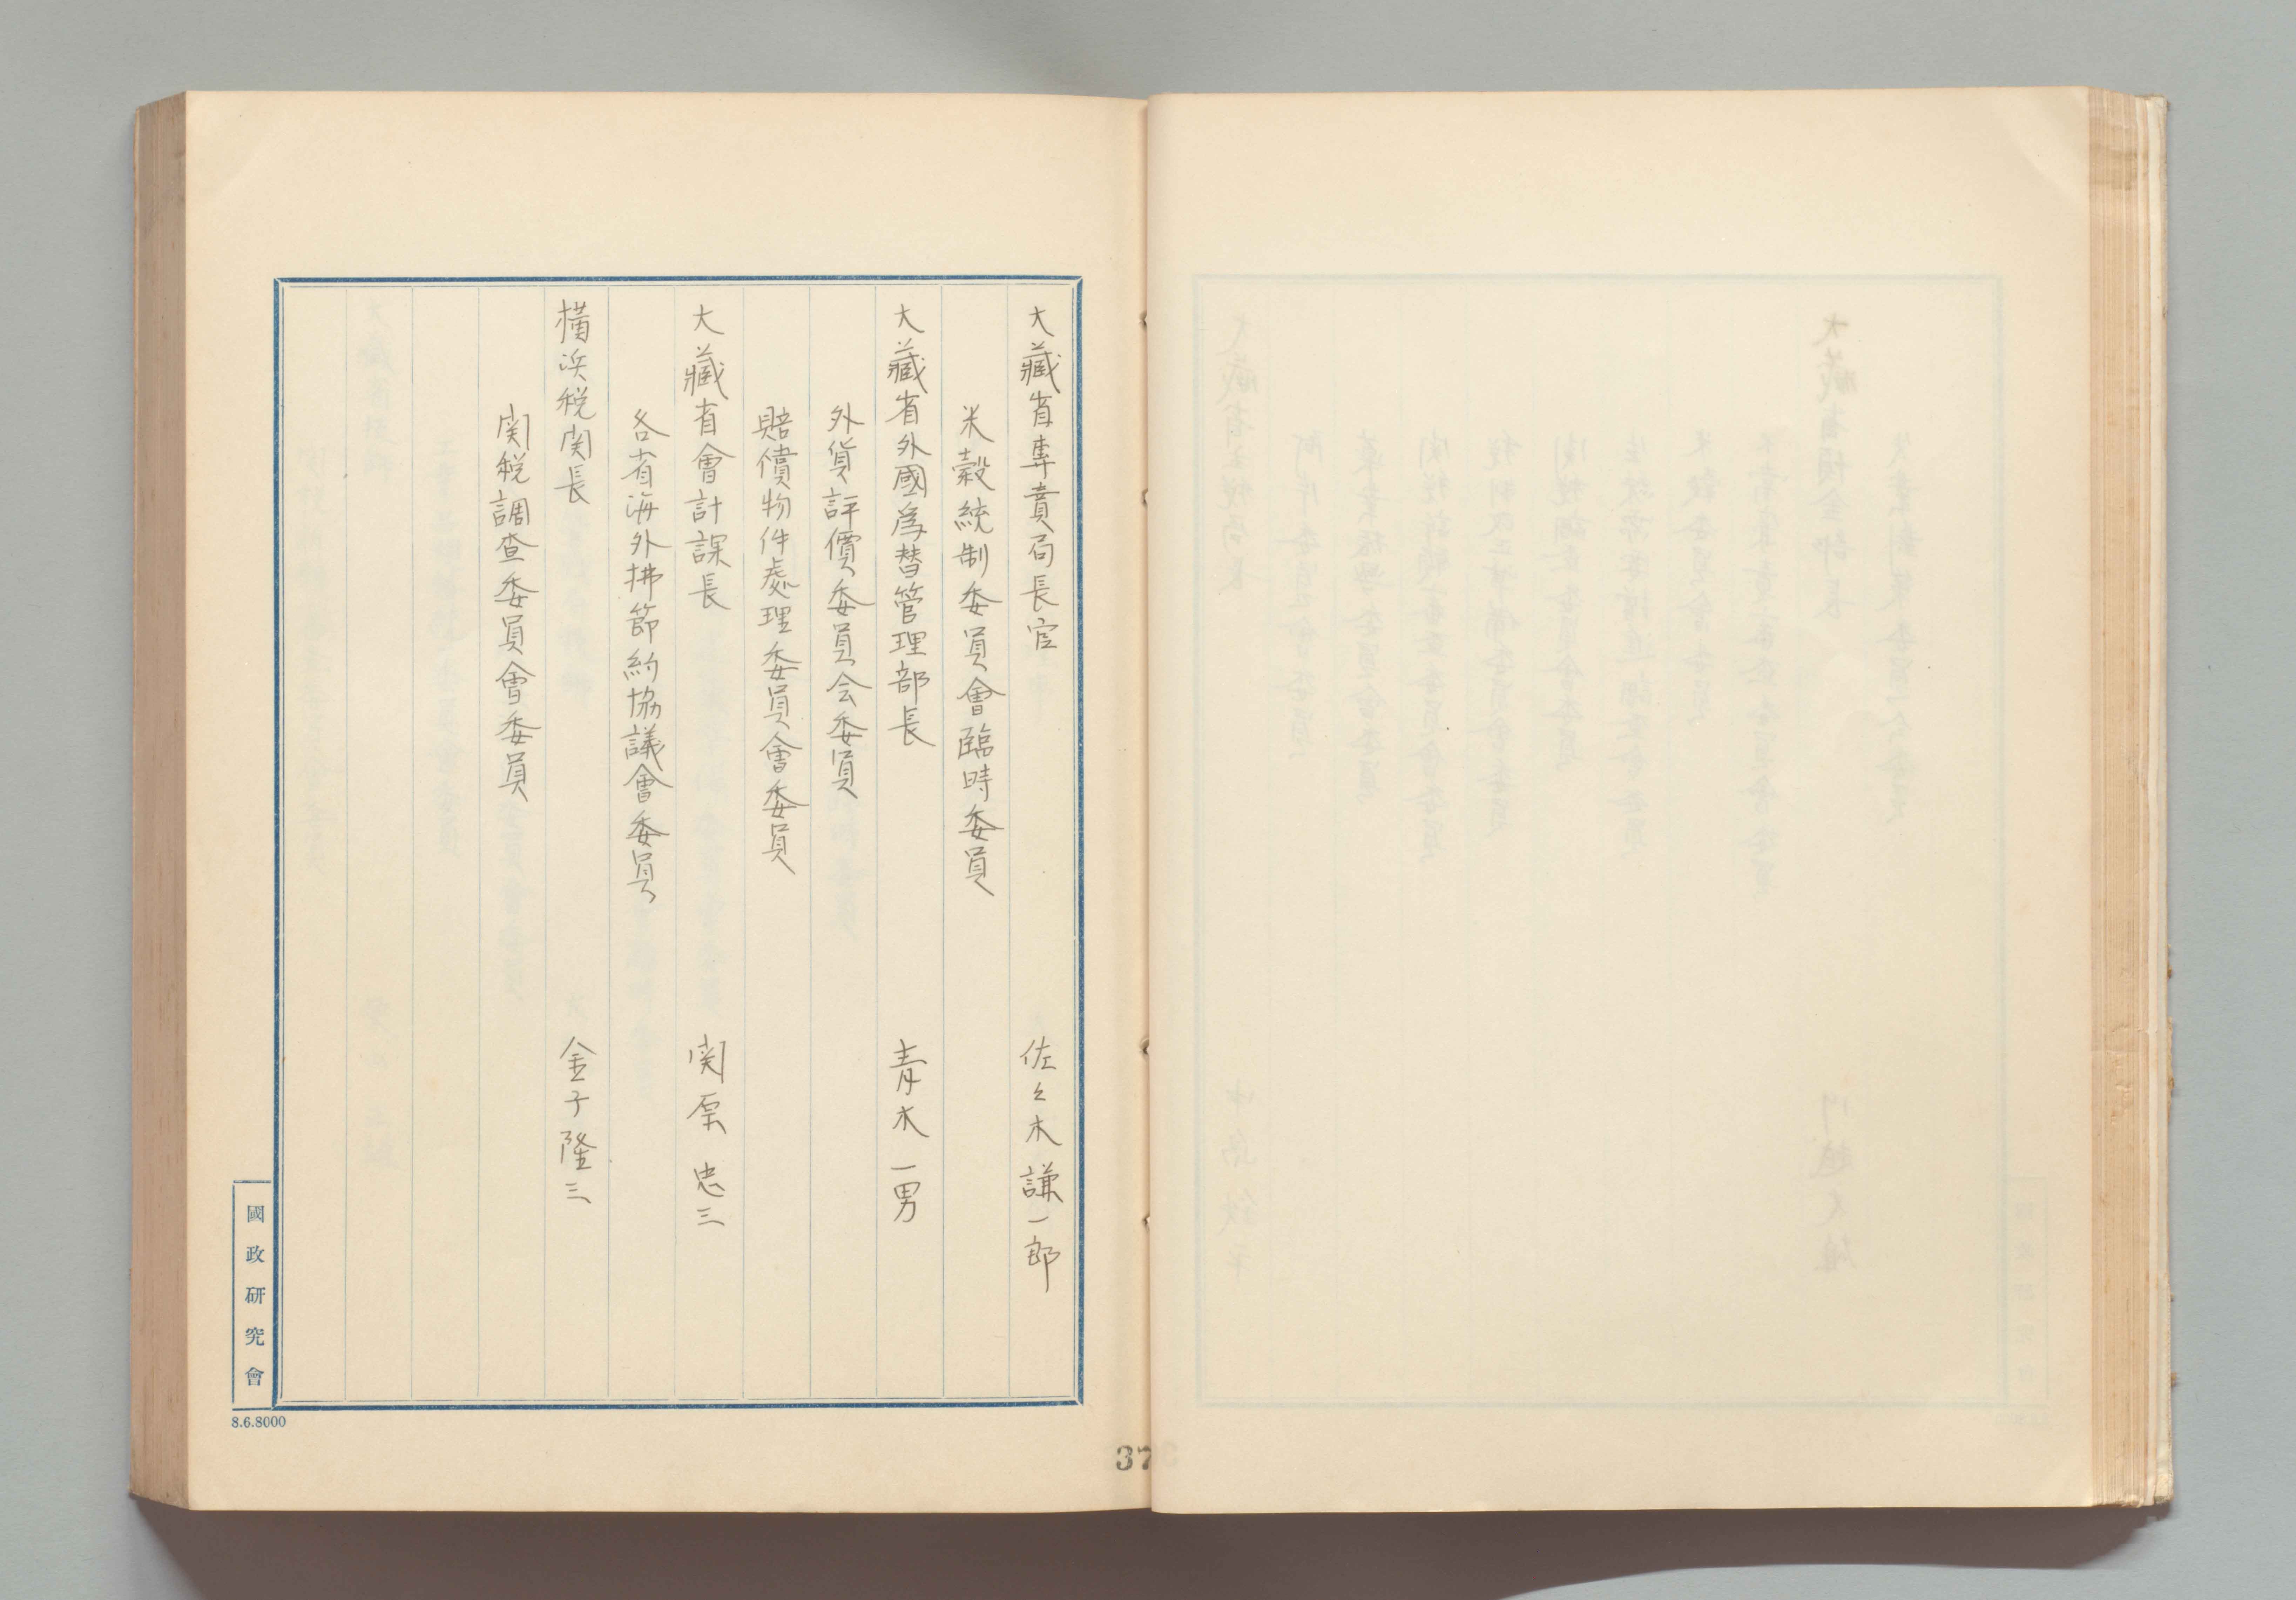 大藏省專賣局長官 佐々木謙一郎
米穀統制委員會臨時委員
大藏省外國為替管理部長 青木一男
外貨評價委員会委員
賠償物件處理委員會委員
大藏省會計課長 関原忠三
各省海外拂節約協議會委員
横浜税関長 金子隆三
関税調査委員會委員
國政研究會
8.6.8000
37